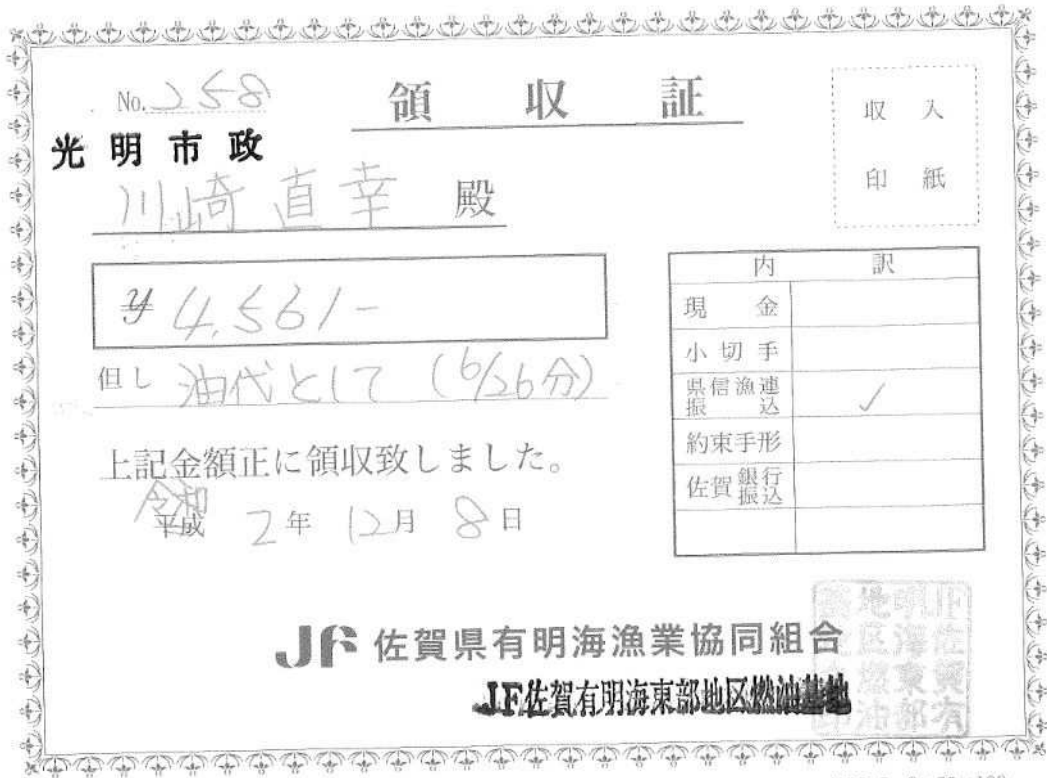 No. 258
領収証
収入
印紙
光明市政
川崎直幸 殿
¥ 4,561-
但し 油代として (6/26分)
上記金額正に領収致しました。
令和
平成 2年 12月 8日
内訳
現金
小切手
県信漁連
振込 ✓
約束手形
佐賀銀行振込
JF 佐賀県有明海漁業協同組合
JF佐賀有明海東部地区燃油基地